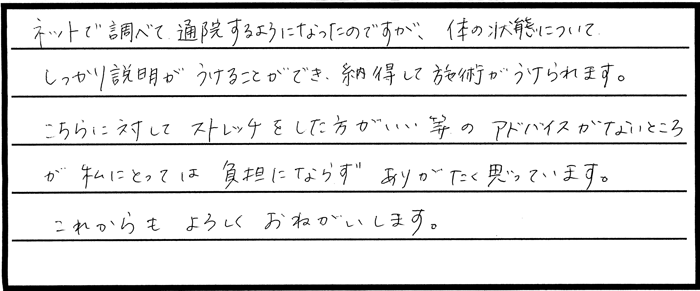 ネットで調べて通院するようになったのですが、体の状態について
しっかり説明がうけることができ、納得して施術がうけられます。
こちらに対してストレッチをした方がいい…等のアドバイスがないところ
が私にとっては負担にならずありがたく思っています。
これからもよろしくおねがいします。